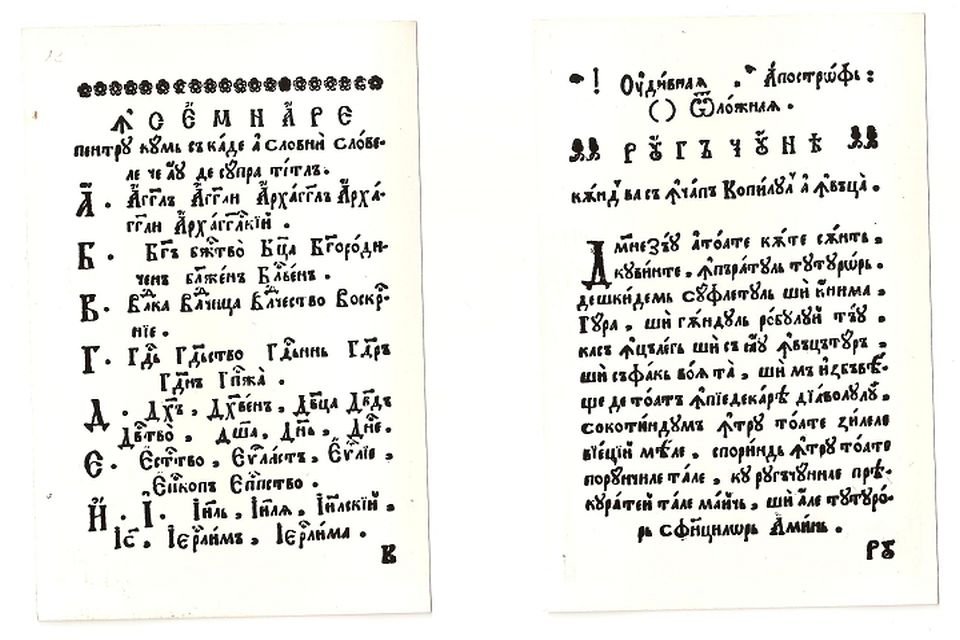 Ꙟ С Е́ М Н А́ Р Е
пентрꙋ кꙋмь съ ка́де а̀ словнѝ сло́ве-
ле че аꙋ де сꙋпра ті́тлъ.
А҃ · А҆гг҃лъ А҆гг҃ли А҆рха́гг҃лъ А҆рха́-
гг҃ли А҆рха́гг҃лскїй .
Б · Бг҃ъ бж҃тво̀ Бц҃а Бг҃оро́ди-
ченъ бл҃же́нъ Бл҃ве́нъ .
В · Вл҃ка Вл҃чеща Вл҃чество Воскр҃-
нїе .
Г · Гд҃ь Гд҃ьство Гд҃ьинь Гд҃ръ
Гд҃нъ Гп҃жа̀ .
Д · Дх҃ъ , Дх҃ве́нъ , Дв҃ца Дв҃дъ
Дв҃тво̀ , дш҃а , Дн҃ь , Дн҃е .
Є · Єст҃тво , Єѵ҃ласть , Єѵ҃лїе ,
Єп҃копъ Єп҃пство .
И҆ · І҆ · Іи҃ль , Іи҃лѧ , Іи҃лскїй ,
Іс҃ , Іер҃ли́мъ , Іер҃ли́ма .
В
! Оуди́внаѧ . А҆постро́фь :
() Ѿло́жнаѧ .
Р Ꙋ Г Ъ Ч Ю́ Н Ѣ
кѫ́нд ва съ ꙟча́пъ Копи́лꙋл а̀ ꙟвъца̀ .
Дм҃незъ́ꙋ а҆тоа́те кѫ́те сѫ́нть ,
кꙋви́нте , ꙟпъра́тꙋль тꙋтꙋрѡ́рь .
дешки́демь сꙋ́флетꙋль шѝ и́нима ,
Гꙋ́ра , шѝ гѫ́ндꙋль ро́бꙋлꙋй тъ́ꙋ .
касъ ꙟцъле́гь шѝ съ аꙋ ꙟвъцътꙋ́ръ ,
шѝ съфа́кь во́ѧ та̀ , шѝ мъ и҆збъвѣ́-
ще де то́атъ ꙟпїедека́рѣ дїа́волꙋлꙋй .
сокоти́ндꙋмъ ꙟтрꙋ то́ате зи́леле
вїе́цїй мѣ́ле , спори́ндь ꙟтрꙋ то́ате
порꙋ́нчиле та́ле , кꙋ рꙋгъчꙋ́ниле прѣ-
кꙋра́тей та́ле ма́йчь , шѝ а́ле тꙋтꙋро́-
рь сфи́нцилѡрь Ами́нь .
РꙊ